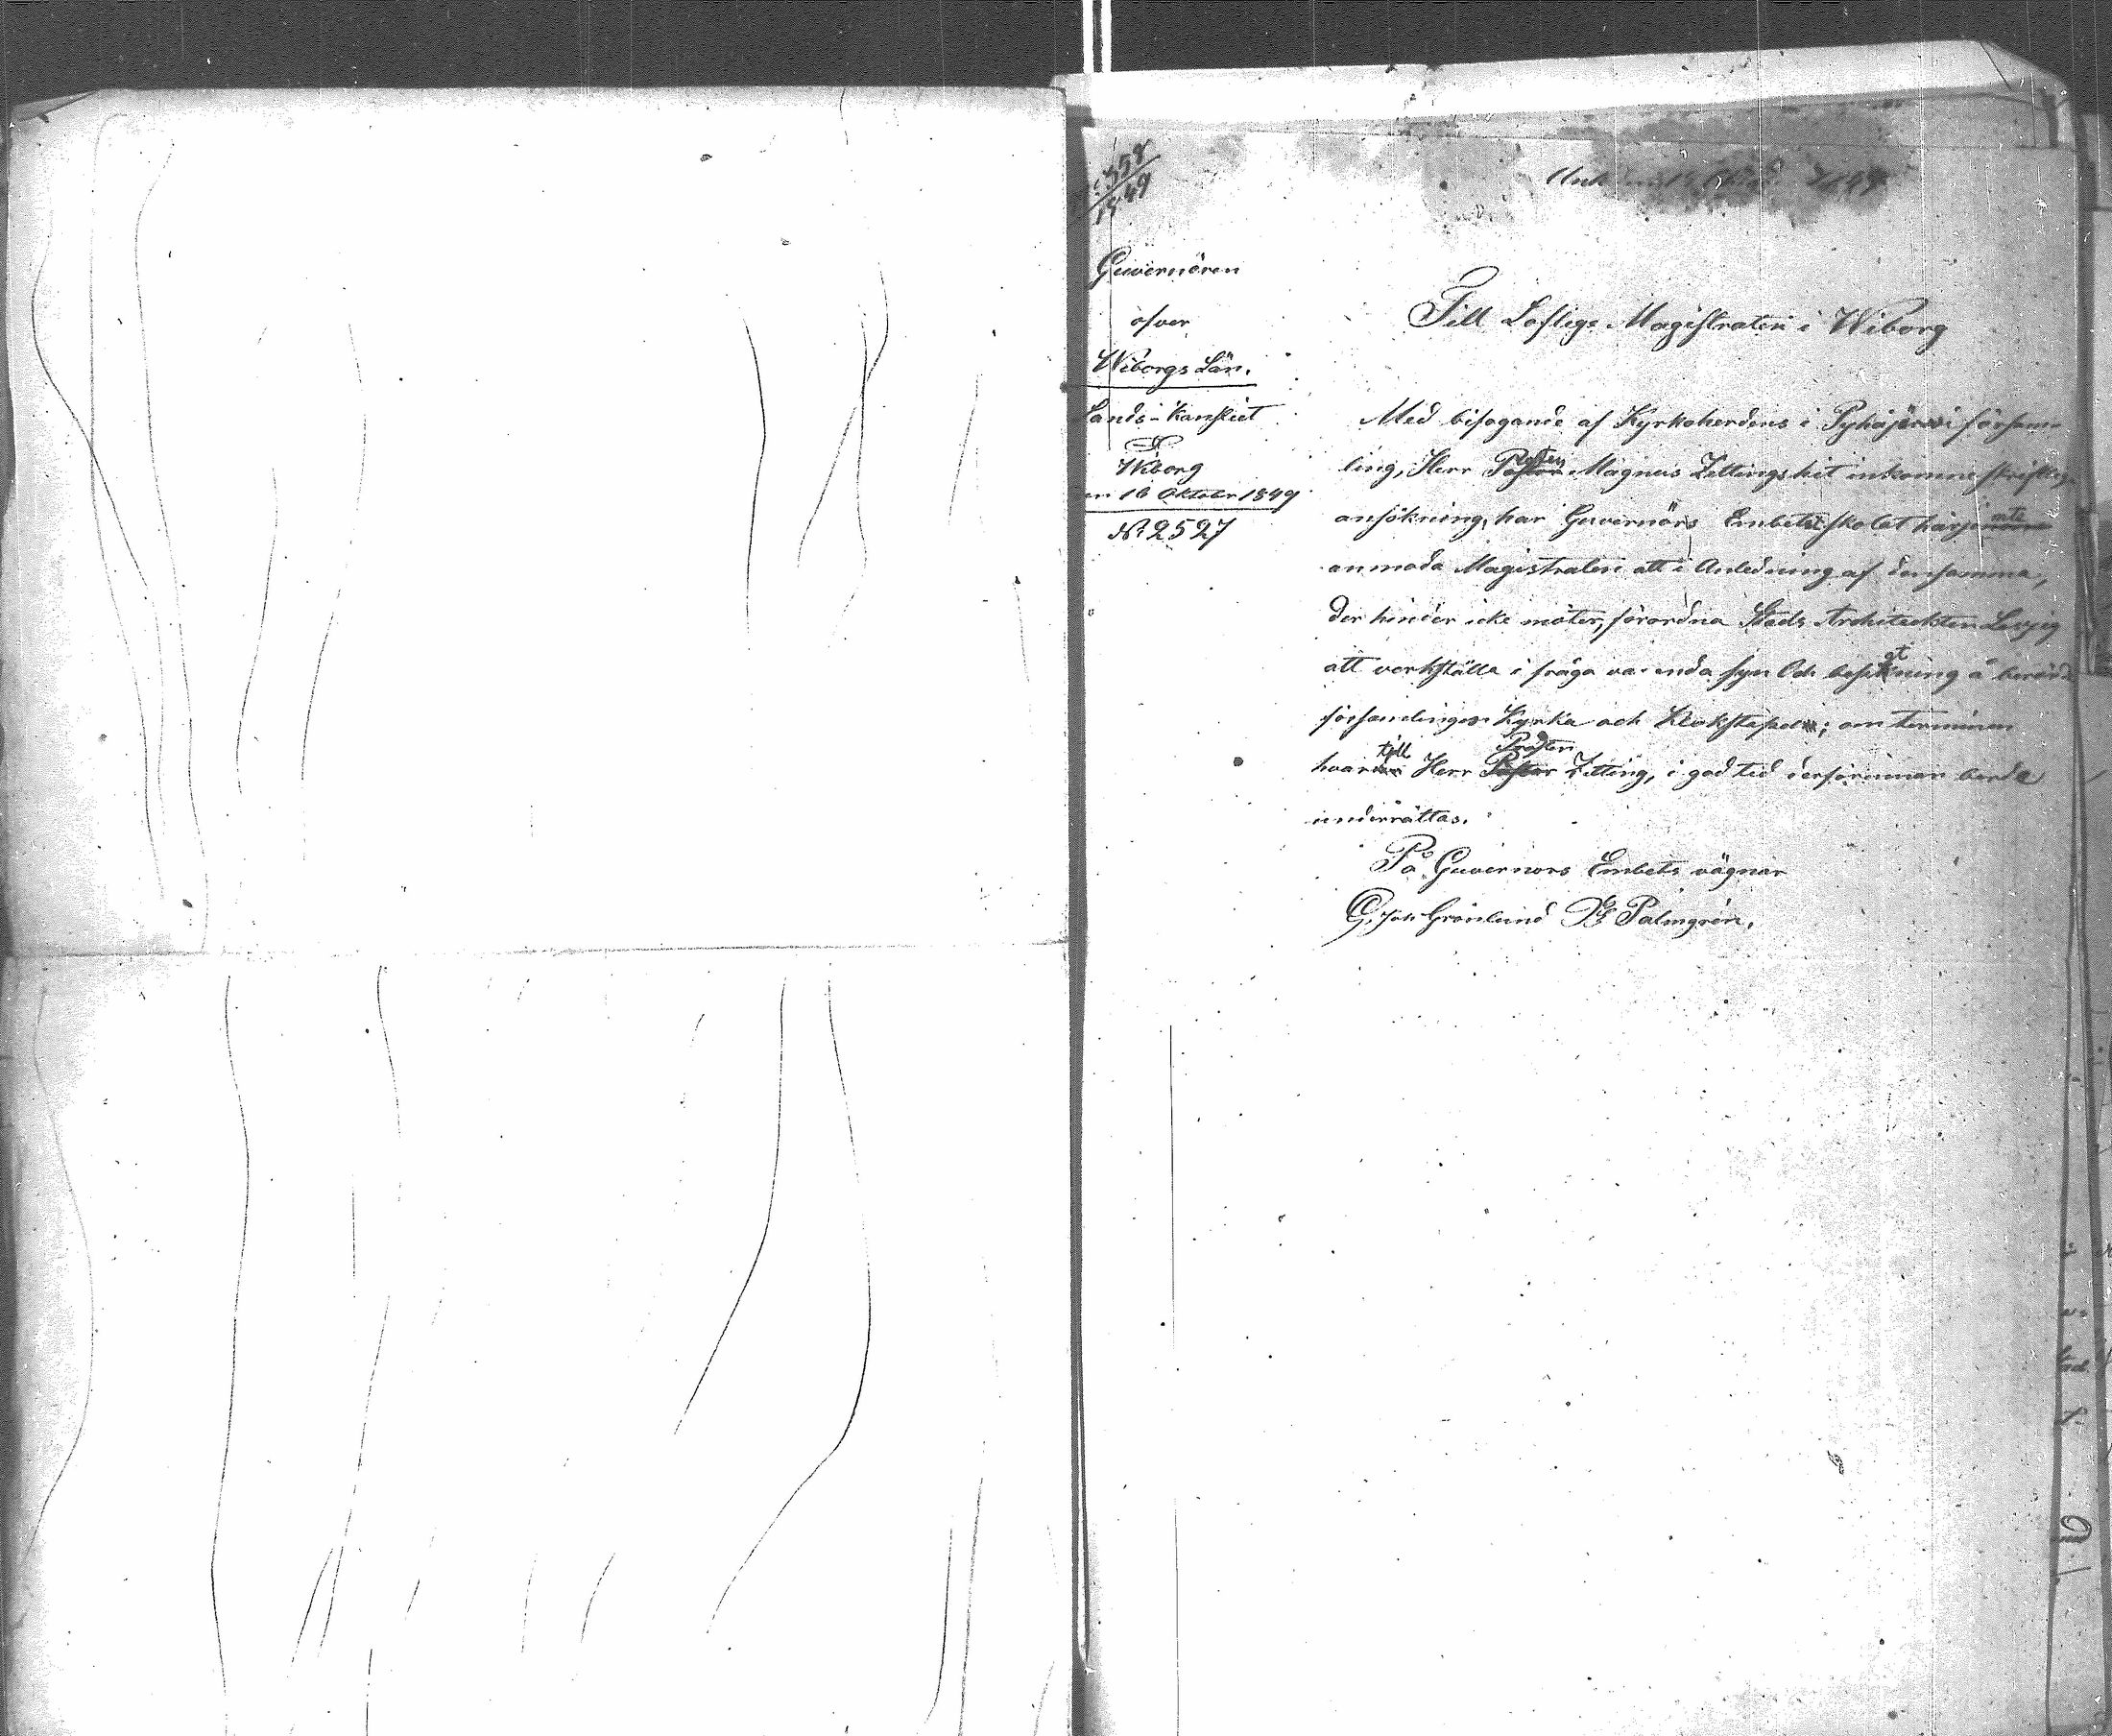 358
1849
1849
Guvernören
öfver
Wiborgs Län.
Lands-Kansliet
Wiborg
en 16 Oktober 1849
No 2527
Till Lofliga Magistraten i Wiborg
Med bifogande af Kyrkoherdens i Pyhäjärvi försam-
ling, Herr Magnus Zittings hit inkomne skriftliga
ansökning, har Guvernörs Embetet skolat härj
anmoda Magistraten att i Anledning af densamma,
der hinder icke möter, förordna Stads Architeckten
att verkställa i fråga varande syn och besigtning å berörde
församlingens Kyrka och Klokstapel; om terminen
hvartill Herr Prosten Zitting, i god tid derförinnan borde
underrättas.
På Guvernors Embets vägnar
G. Joh Grönlund Palmgren.